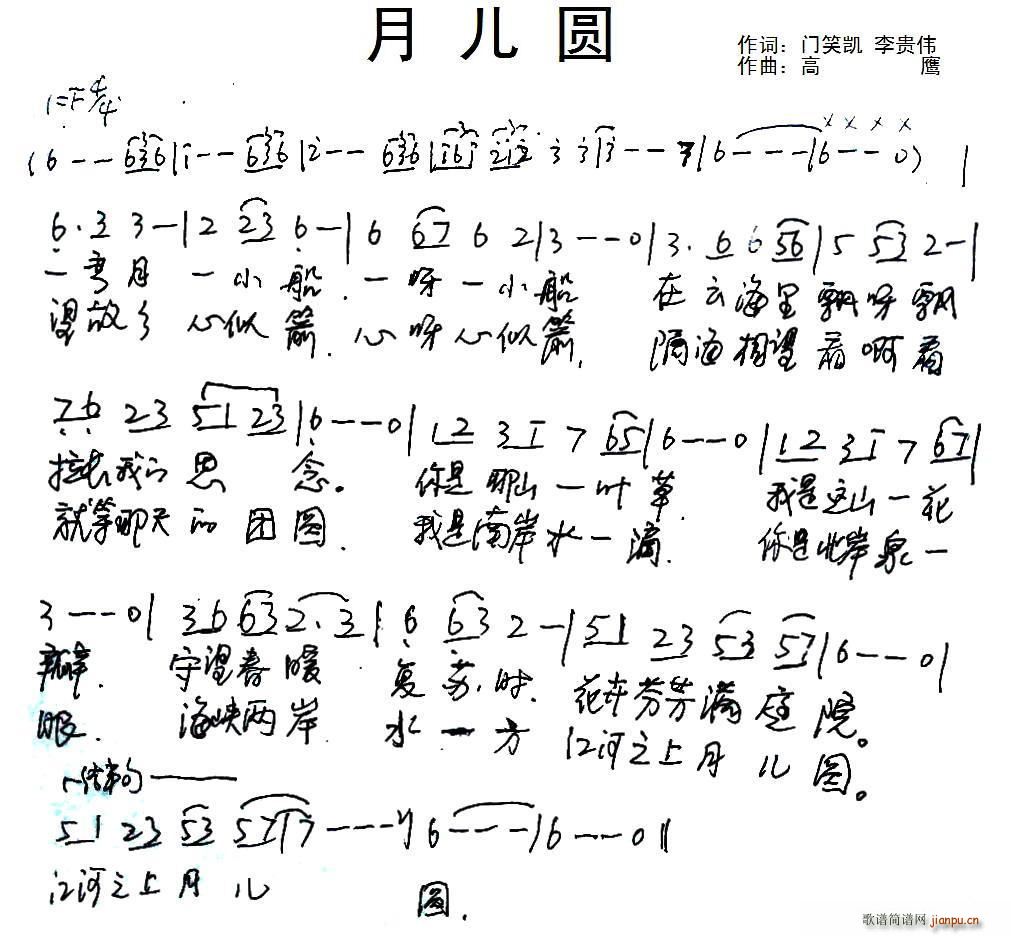 月儿圆
作词：门笑凯 李贵伟
作曲：高 鹰
1=F 4/4
(6 - - 636 | i - - 636 | 2 - - 636 | i6i 2i2 3 3 | 3 - - 7 | 6 - - - | 6 - - 0) |
x x x x
6. 3 3 - | 2 23 6 - | 6 67 6 2 | 3 - - 0 | 3. 6 6 56 | 5 53 2 - |
一弯月 一小船, 一呀一小船 在云海里飘呀飘
望故乡 心似箭, 心呀心似箭, 隔海相望看啊看
76 23 51 23 | 6 - - 0 | 12 3i 7 65 | 6 - - 0 | 12 3i 7 67 |
拉长我的思念。 你是那山一叶草, 我是这山一花
就等那天的团圆. 我是南岸水一滴. 你是北岸泉一
3 - - - 0 | 36 63 2. 3 | 6 63 2 - | 51 23 53 57 | 6 - - 0 |
瓣. 守望春暖 复苏时. 花卉芬芳满庭院。
眼. 海峡两岸 水一方 江河之上月儿圆。
结束句
51 23 53 57 | 7 - - - | 6 - - - | 6 - - - 0 ||
江河之上月儿 圆.
歌谱简谱网 jianpu.cn